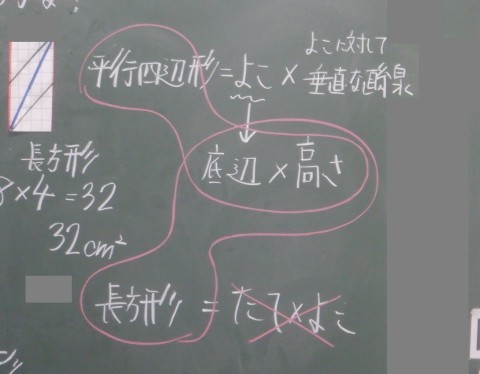 平行四辺形=よこ×
よこに対して
垂直な直線
底辺×高さ
長方形
8×4=32
32cm²
長方形=たて×よこ